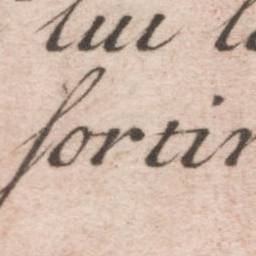 lui l
sortir